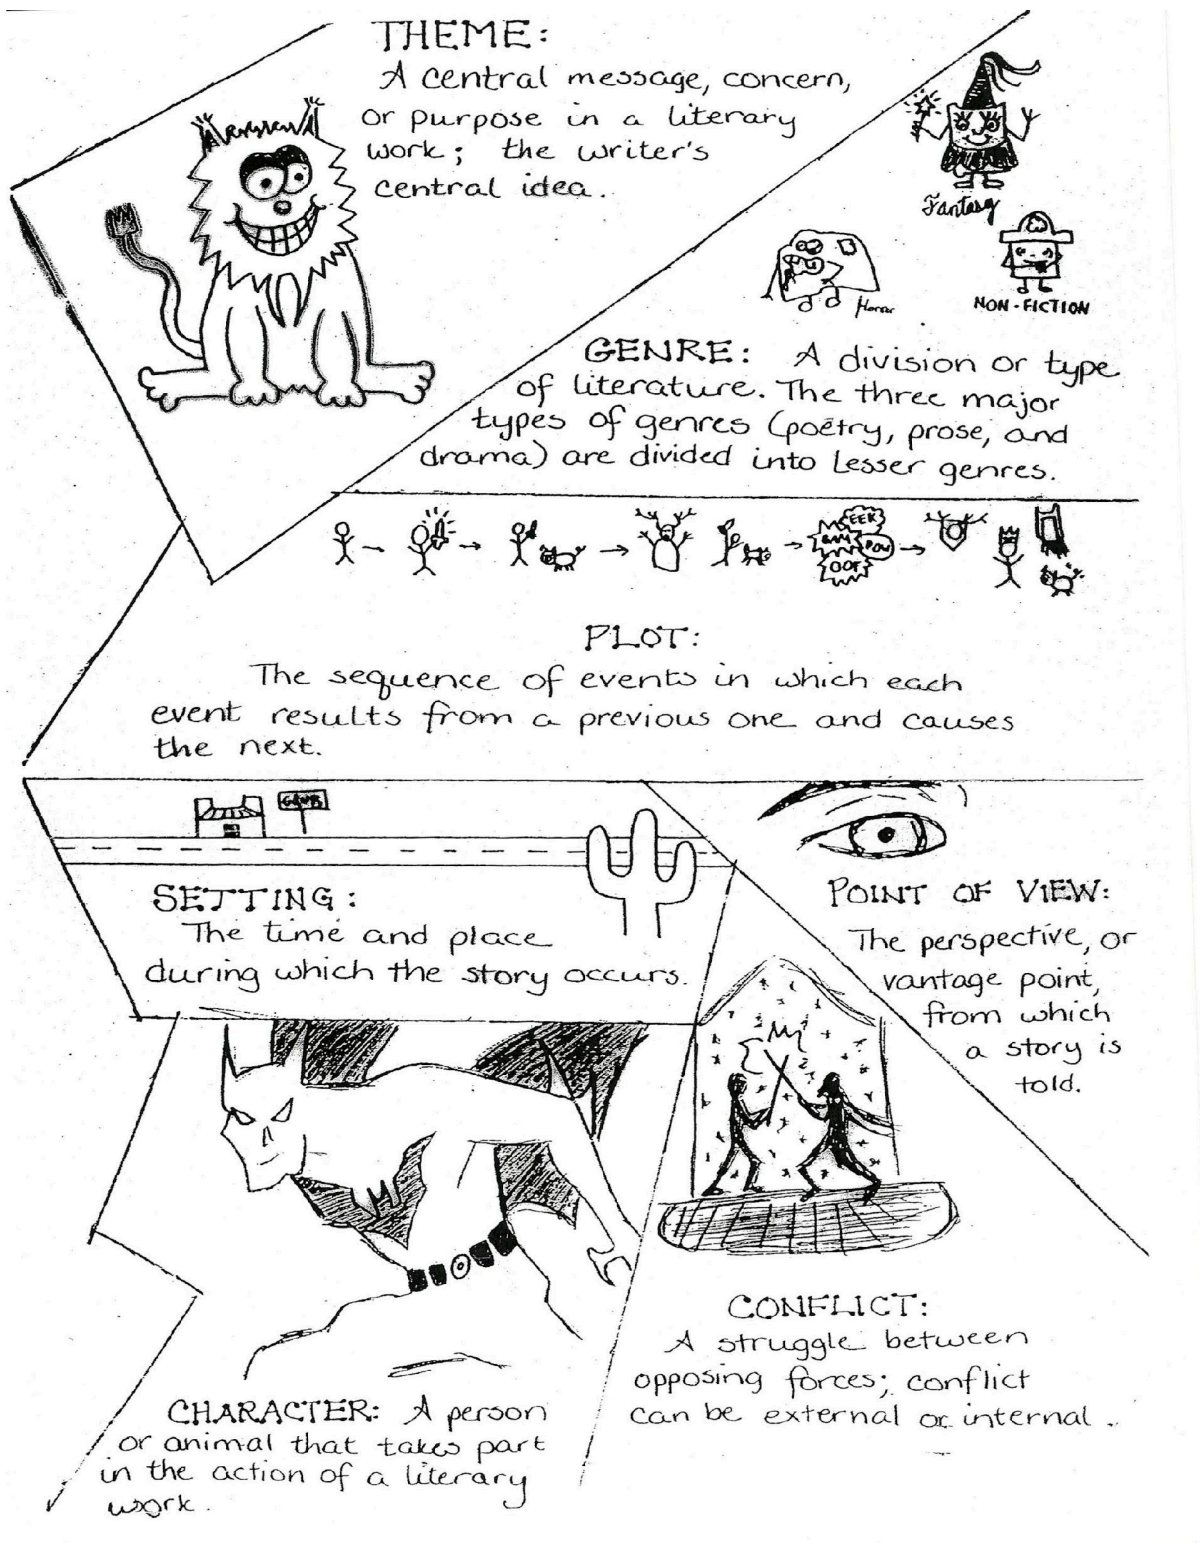 THEME:
A central message, concern,
or purpose in a literary
work; the writer's
central idea.
Fantasy
Horror
NON-FICTION
GENRE: A division or type
of literature. The three major
types of genres (poetry, prose, and
drama) are divided into lesser genres.
EEK
BAM
POW
OOF
PLOT:
The sequence of events in which each
event results from a previous one and causes
the next.
SETTING:
The time and place
during which the story occurs.
POINT OF VIEW:
The perspective, or
vantage point,
from which
a story is
told.
CONFLICT:
A struggle between
opposing forces; conflict
can be external or internal.
CHARACTER: A person
or animal that takes part
in the action of a literary
work.